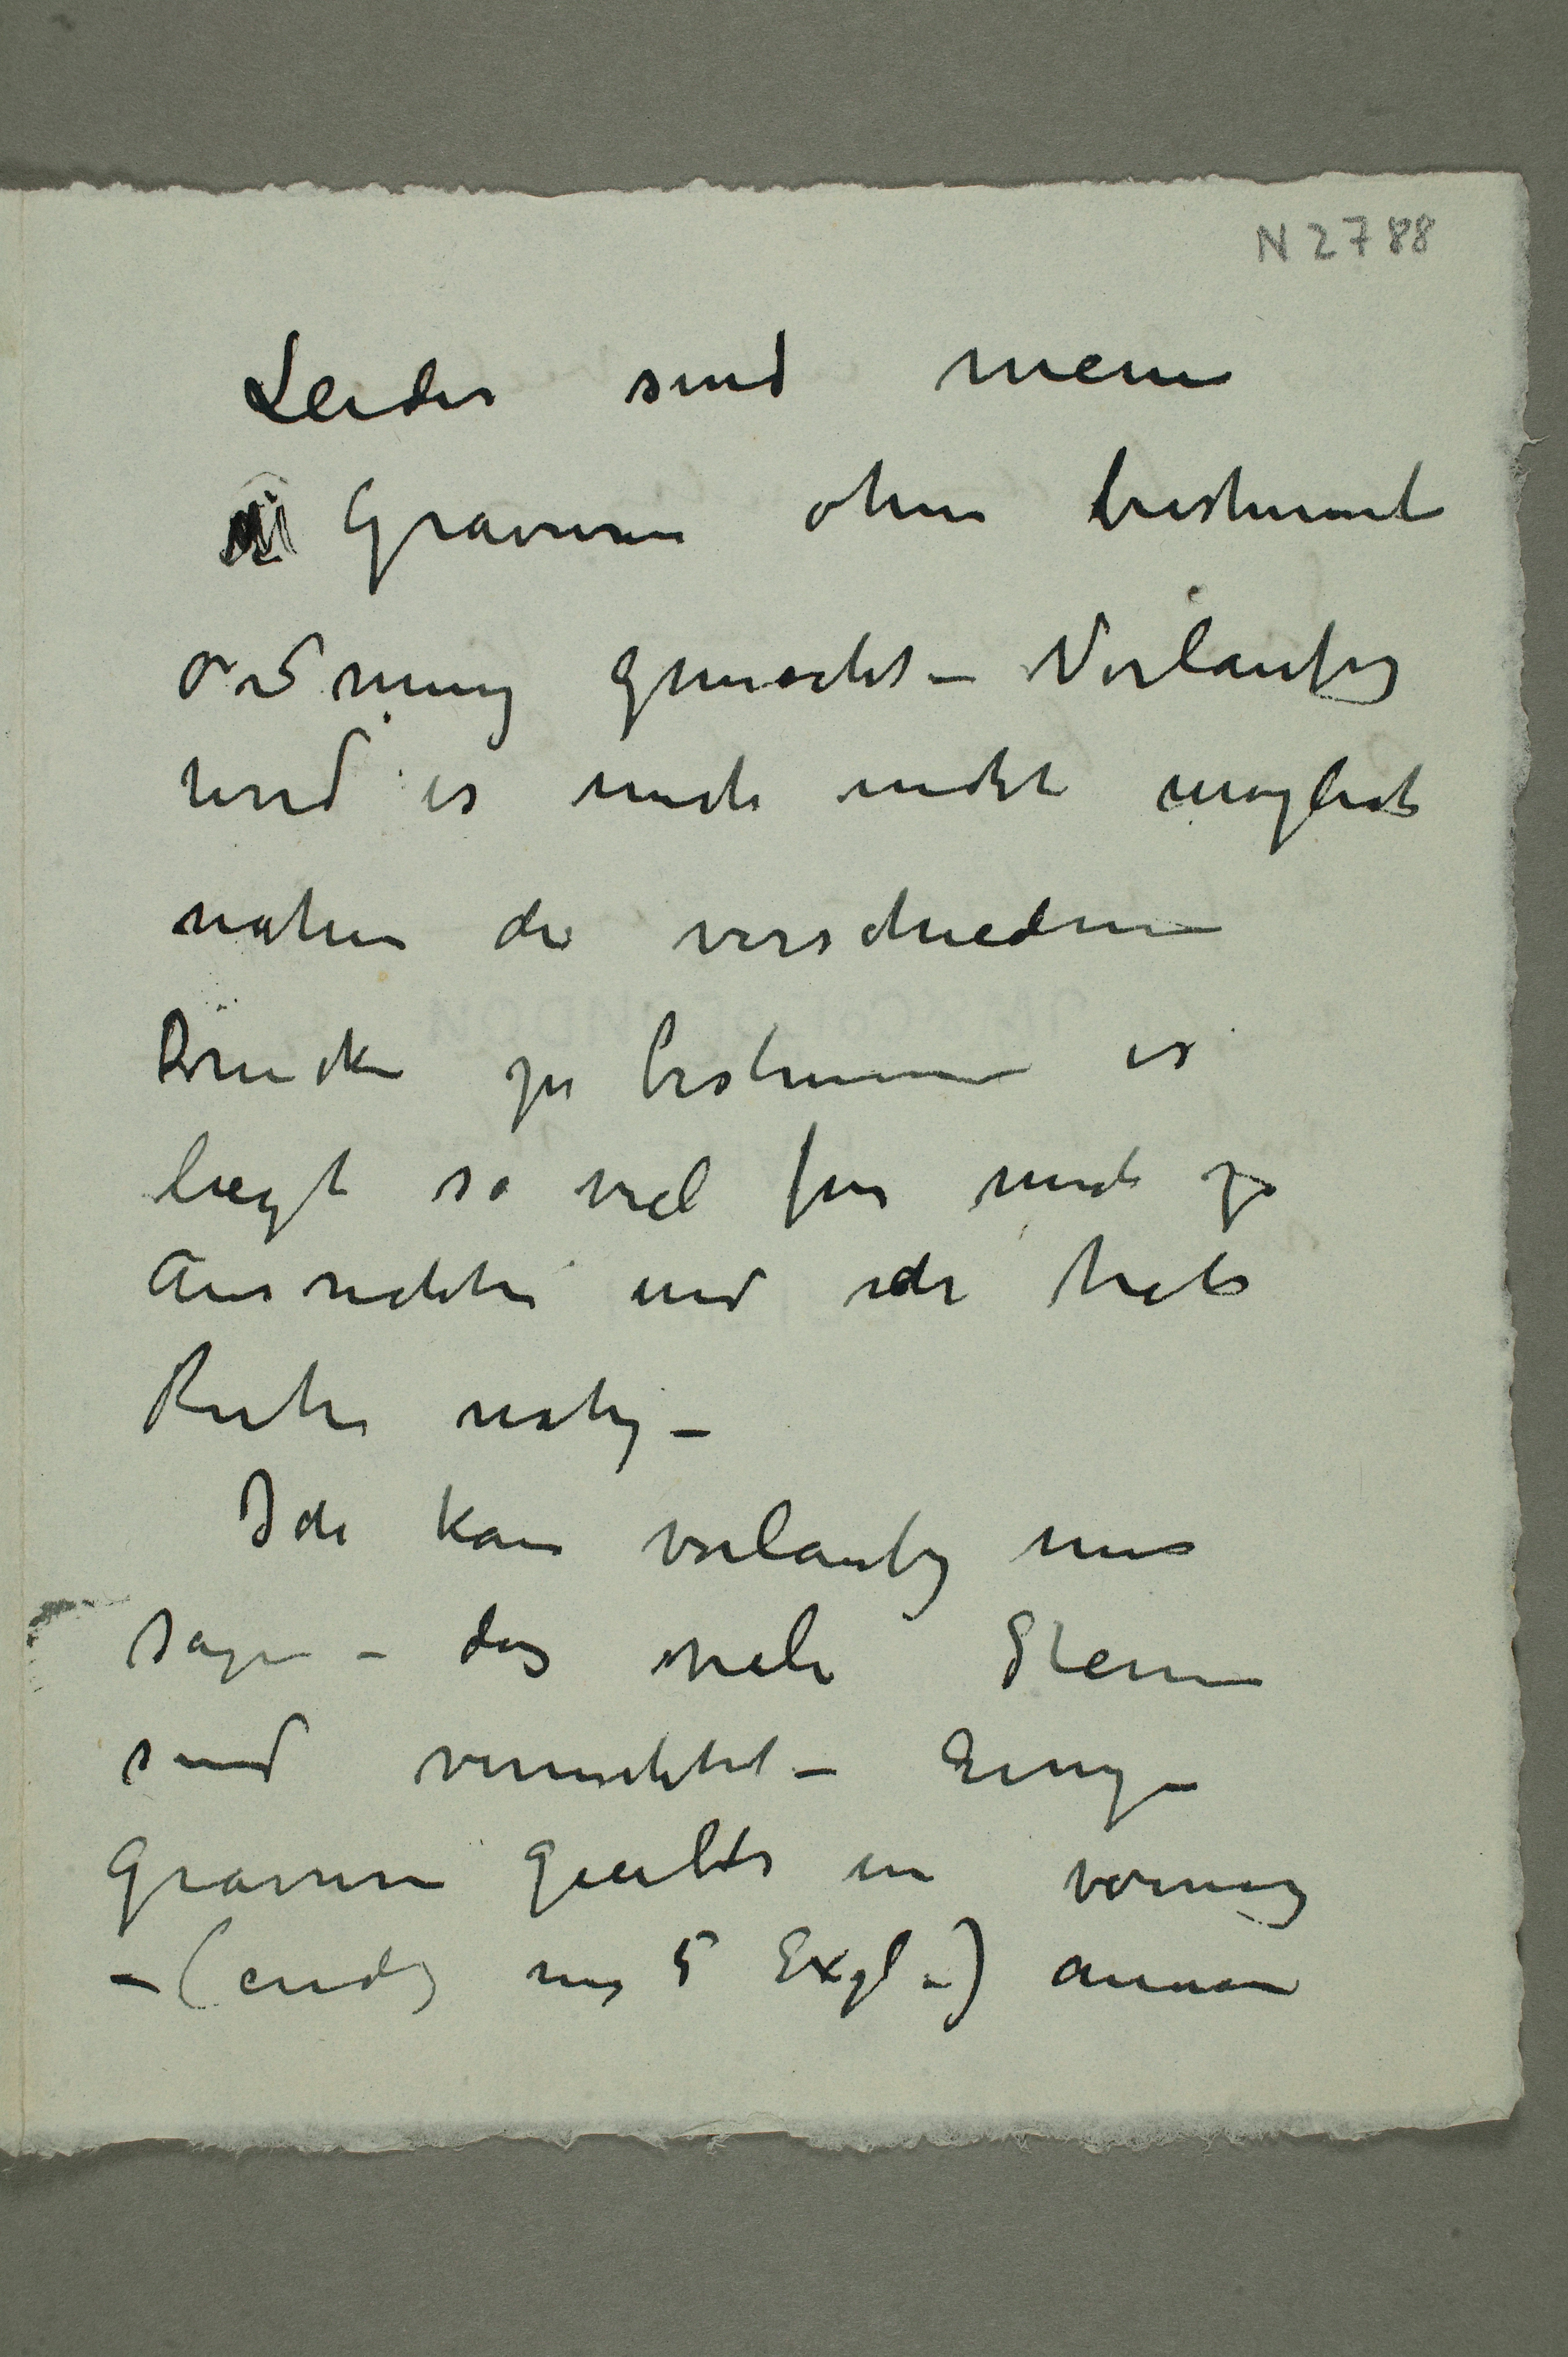 N 2788
Leider sind meine
Gravuren ohne bestimmt
ordnung gemacht – Vorläufig
wird es mich nicht möglich
nähere die verschiedene
Drücke zu bestimmen es
liegt so viel für mich zu
Ausrichten und ich habe
Ruhe nötig –
Ich kann vorläufig nur
sagen – das viele Steine
sind vernichtet – Einige
Gravuren giebts in wenig
– (einds nur 5 Expl.)